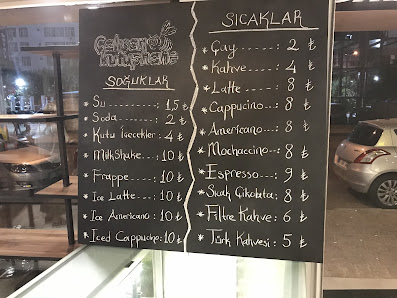 SOĞUKLAR
* Su ------: 1,5 ₺
* Soda -----: 2 ₺
* Kutu İçecekler : 4 ₺
* MilkShake...: 10 ₺
* Frappe ----: 10 ₺
* Ice Latte...: 10 ₺
* Ice Americano : 10 ₺
* Iced Cappucino: 10 ₺
SICAKLAR
* Çay ------: 2 ₺
* Kahve -----: 4 ₺
* Latte -----: 8 ₺
* Cappucino...: 8 ₺
* Americano...: 8 ₺
* Mochaccino..: 8 ₺
* Espresso ---: 9 ₺
* Sıcak Çikolata : 8 ₺
* Filtre Kahve : 6 ₺
* Türk Kahvesi : 5 ₺